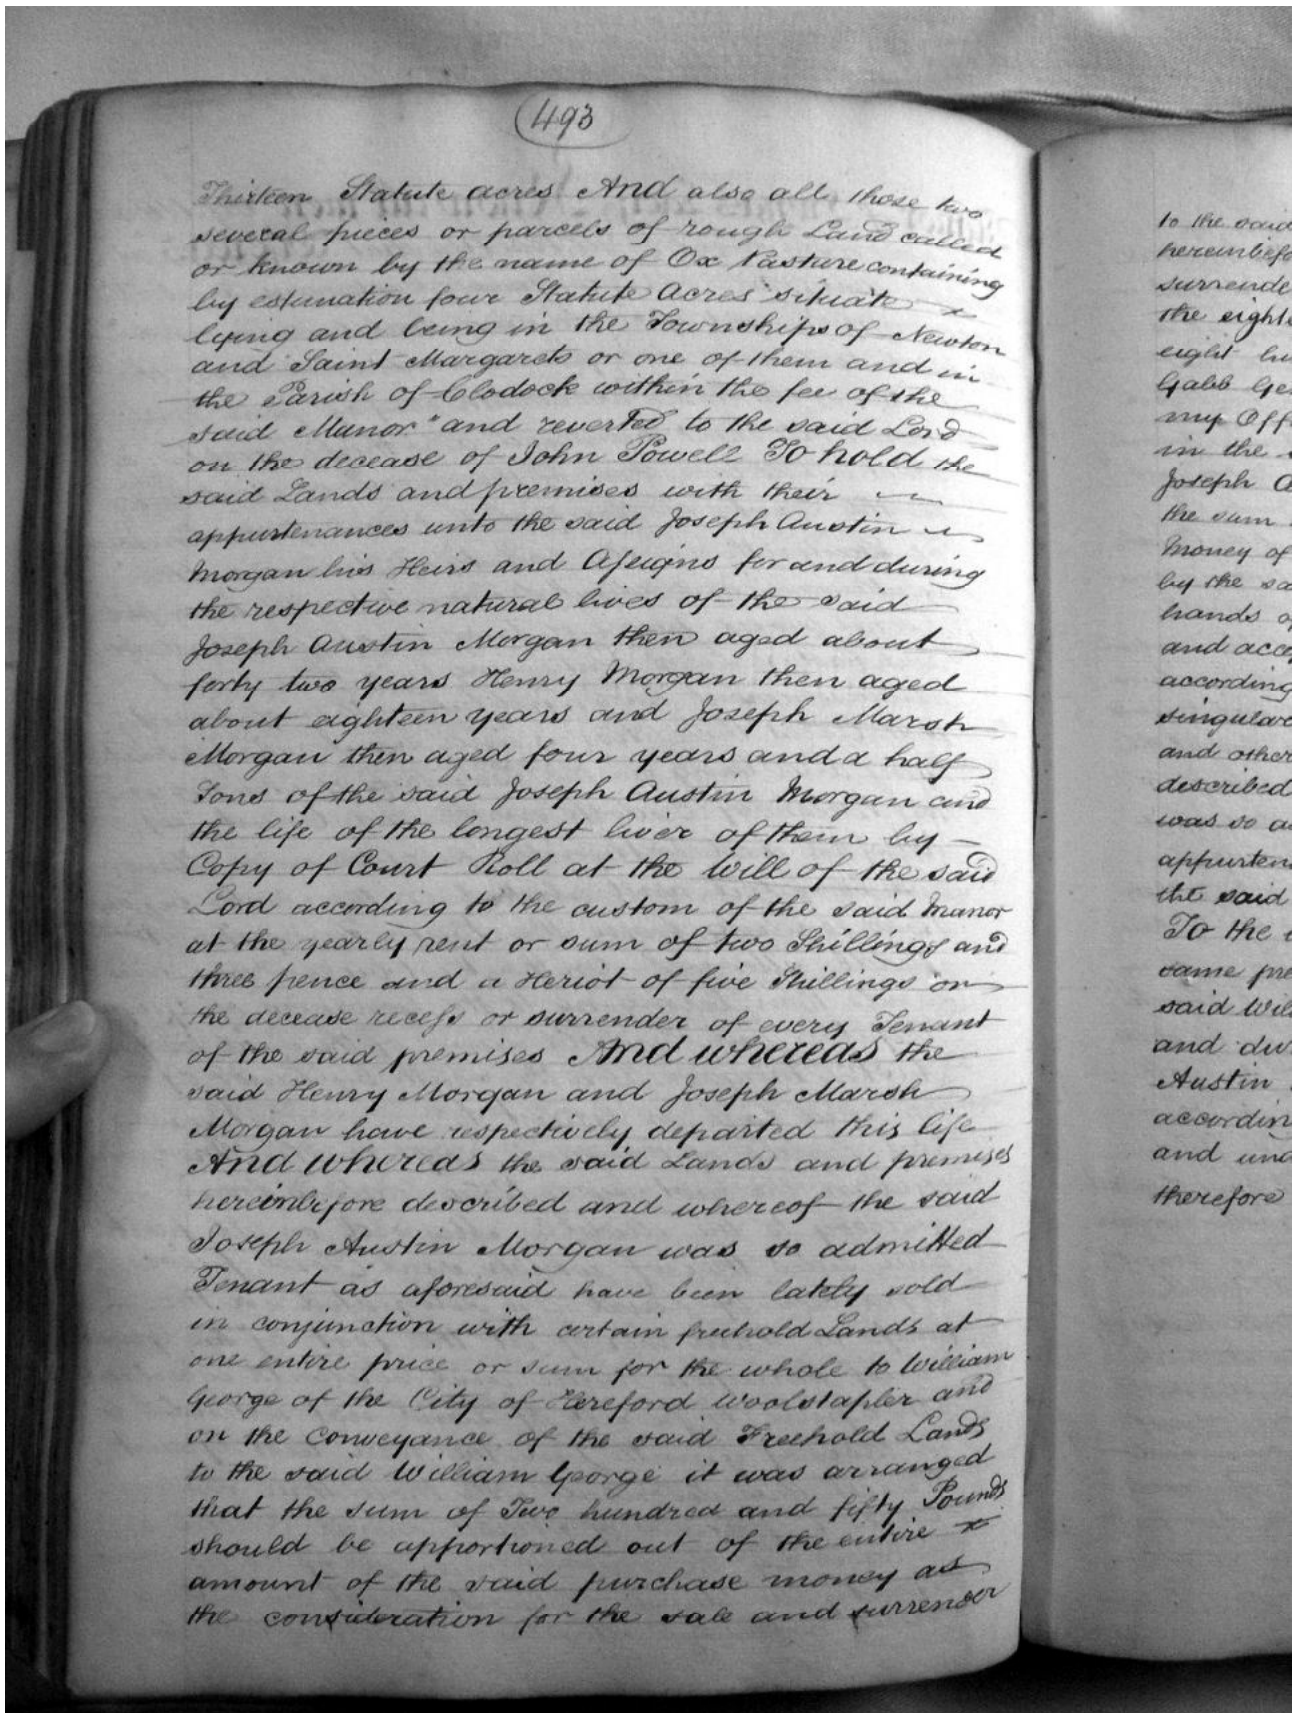 493
Thirteen Statute acres And also all those two
several pieces or parcels of rough Land called
or known by the name of Ox Pasture containing
by estimation four Statute Acres" situate
lying and being in the Townships of Newton
and Saint Margarets or one of them and in
the Parish of Clodock within the fee of the
said Manor" and reverted to the said Lord
on the decease of John Powell To hold the
said Lands and premises with their
appurtenances unto the said Joseph Austin
Morgan his Heirs and Assigns for and during
the respective natural lives of the said
Joseph Austin Morgan then aged about
forty two years Henry Morgan then aged
about eighteen years and Joseph Marsh
Morgan then aged four years and a half
Sons of the said Joseph Austin Morgan and
the life of the longest liver of them by
Copy of Court Roll at the will of the said
Lord according to the custom of the said Manor
at the yearly rent or sum of two Shillings and
three pence and a Heriot of five Shillings on
the decease recess or surrender of every Tenant
of the said premises And whereas the
said Henry Morgan and Joseph Marsh
Morgan have respectively departed this life
And whereas the said Lands and premises
hereinbefore described and whereof the said
Joseph Austin Morgan was so admitted
Tenant as aforesaid have been lately sold
in conjunction with certain freehold Lands at
one entire price or sum for the whole to William
George of the City of Hereford Woolstapler and
on the Conveyance of the said Freehold Lands
to the said William George it was arranged
that the sum of Two hundred and fifty Pounds
should be apportioned out of the entire
amount of the said purchase money as
the consideration for the sale and surrender
to the said
hereinbefo
surrende
the eight
eight hu
Gabb Ge
my Off
in the
Joseph A
the sum
Money of
by the sa
hands o
and acc
according
singular
and other
described
was so a
appurten
the said
To the
same pre
said Will
and du
Austin
accordin
and und
therefore